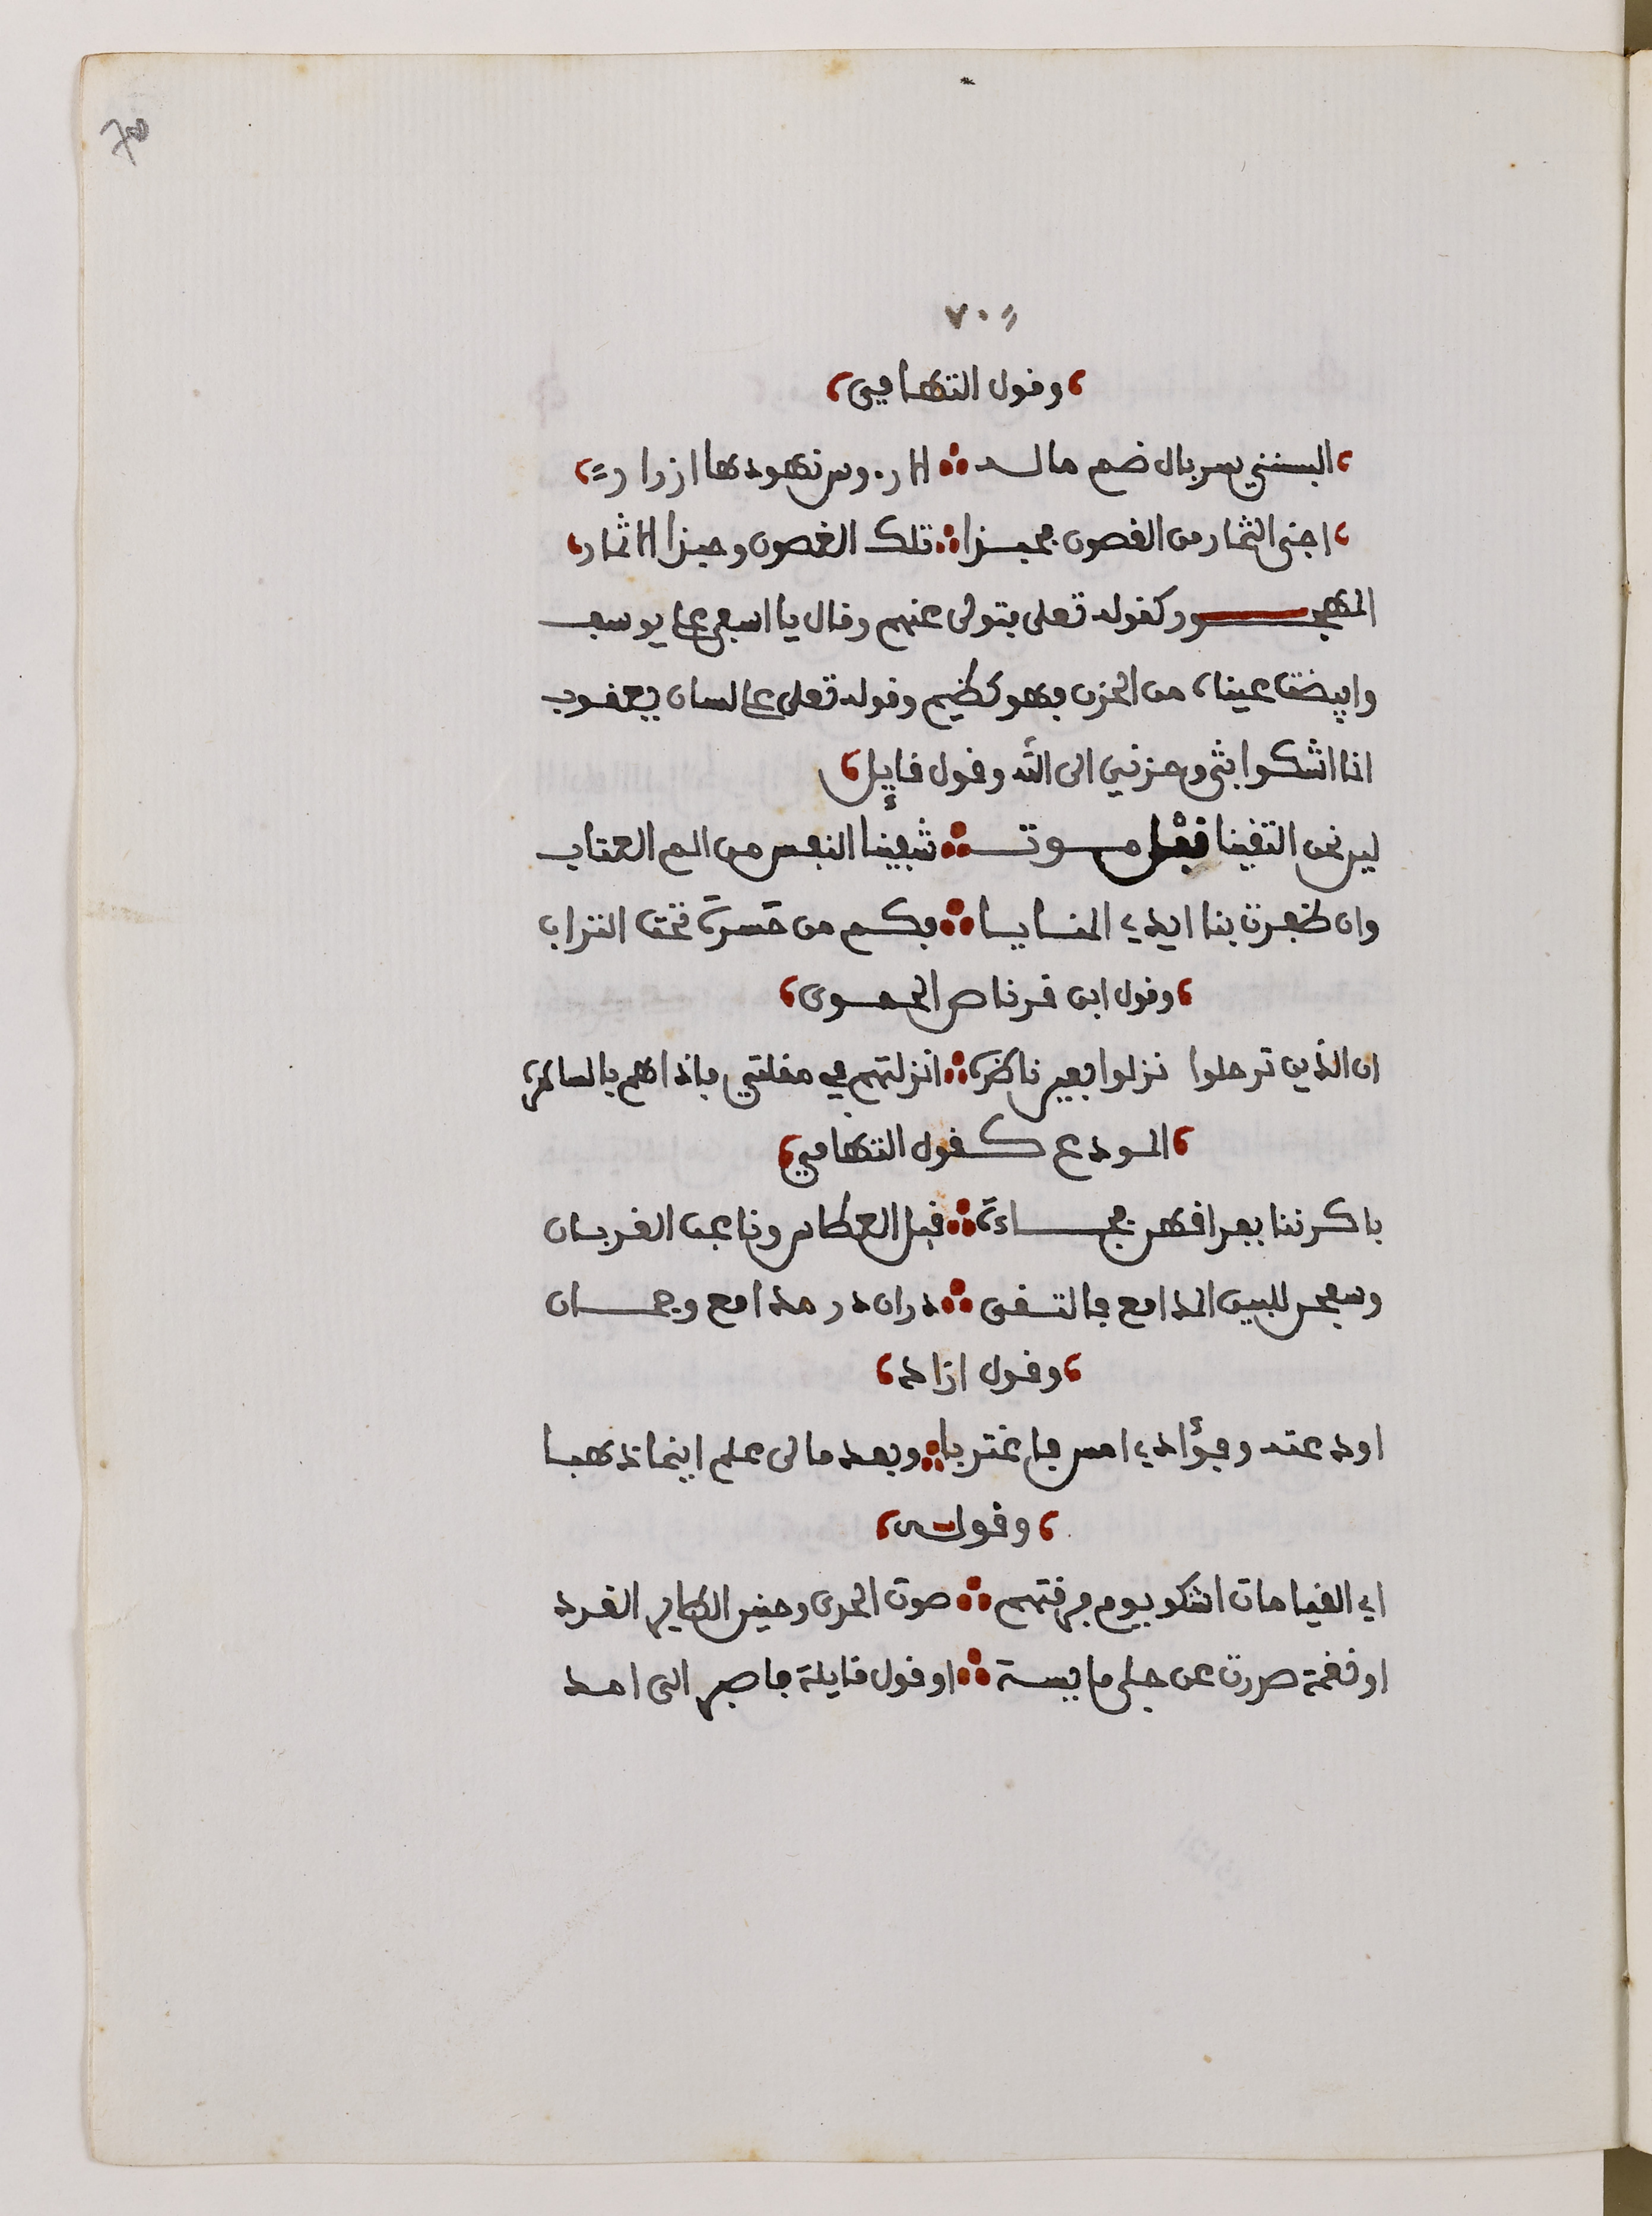 70
٧٠
وقول التهامي
البستني سربال ضم ماله ∴ الا رءوس نهودها ازرار
اجني الثمار من الغصون فحبذا ∴ تلك الغصون وحبذا الاثمار
المهجور كقوله تعلى فتولى عنهم وقال يا اسفى على يوسف
وابيضت عيناه من الحزن فهو كظيم وقوله تعلى على لسان يعقوب
انما اشكوا بثي وحزني الى الله وقول قايل
لين نحن التقينا قبل موت ∴ شفينا النفس من الم العتاب
وان ظفرت بنا ايدي المنايا ∴ فكم من حسرة تحت التراب
وقول ابن قرناص الحموى
ان الذين ترحلوا نزلوا بعين ناظرة ∴ انزلتهم في مقلتي فاذا هم بالساهرة
المودع كقول التهامي
باكرننا بفراقهن فجاءة ∴ قبل العطاس وناعب الغربان
وسفحن للبين المدامع فالتقى ∴ دران در مدامع وجمان
وقول ازاد
اودعته وفؤادي امس فاغتربا ∴ وبعد مالى علم اينما ذهبا
وقولى
اي القيامات اشكو يوم فرقتهم ∴ صوت الحدى وحنين الطاير الغرد
او نغمة صدرت عن حلى مايسة ∴ او قول قايلة فاصبر الى امد